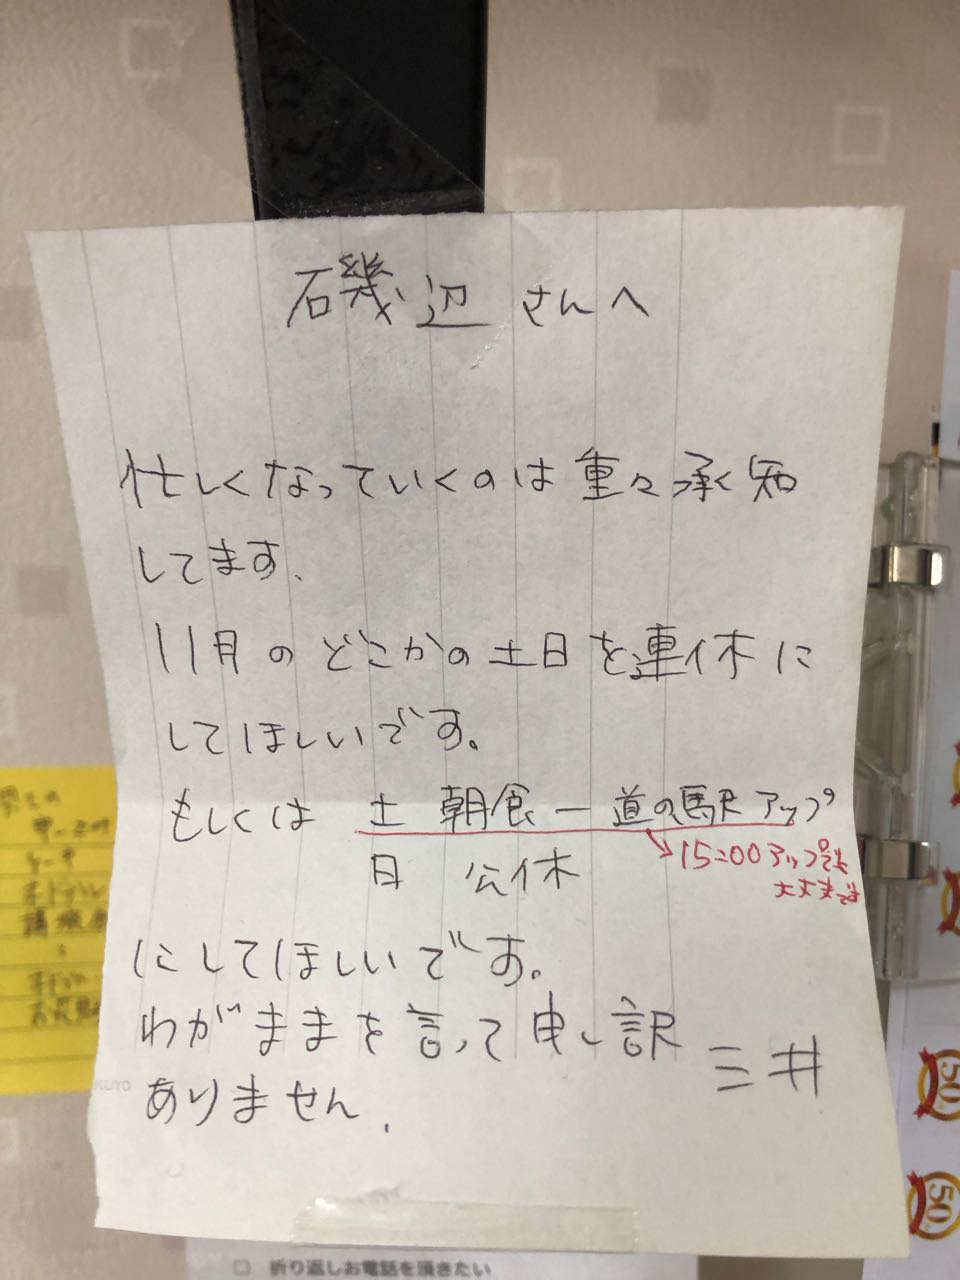 磯辺さんへ
忙しくなっていくのは重々承知
してます、
11月のどこかの土日を連休に
してほしいです。
もしくは 土 朝食ー道の駅アップ
→15:00アップでも
大丈夫です
日 公休
にしてほしいです。
わがままを言って申し訳
ありません、
三井
KUYO
50
50
□ 折り返しお電話を頂きたい